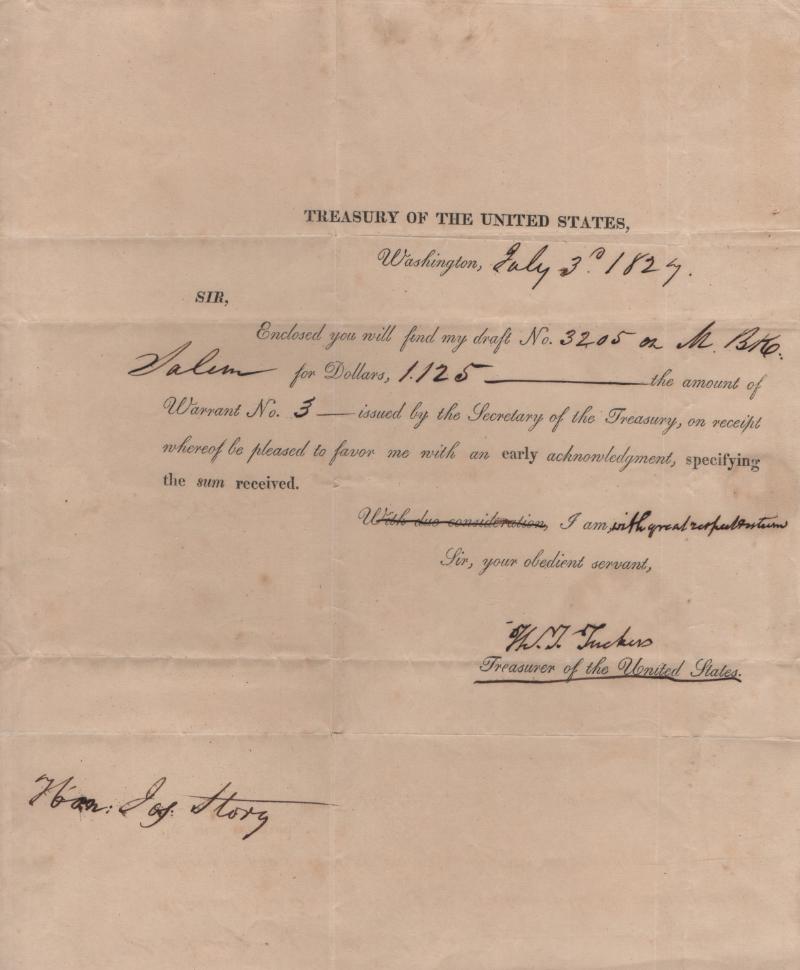 TREASURY OF THE UNITED STATES,
Washington, July 3d. 1827.
SIR,
Enclosed you will find my draft No. 3205 on M. BK.
Salem for Dollars, 1.125 the amount of
Warrant No. 3 issued by the Secretary of the Treasury, on receipt
whereof be pleased to favor me with an early acknowledgment, specifying
the sum received.
With due consideration, I am, with great respect
Sir, your obedient servant,
Treasurer of the United States.
Hon: Jos. Story